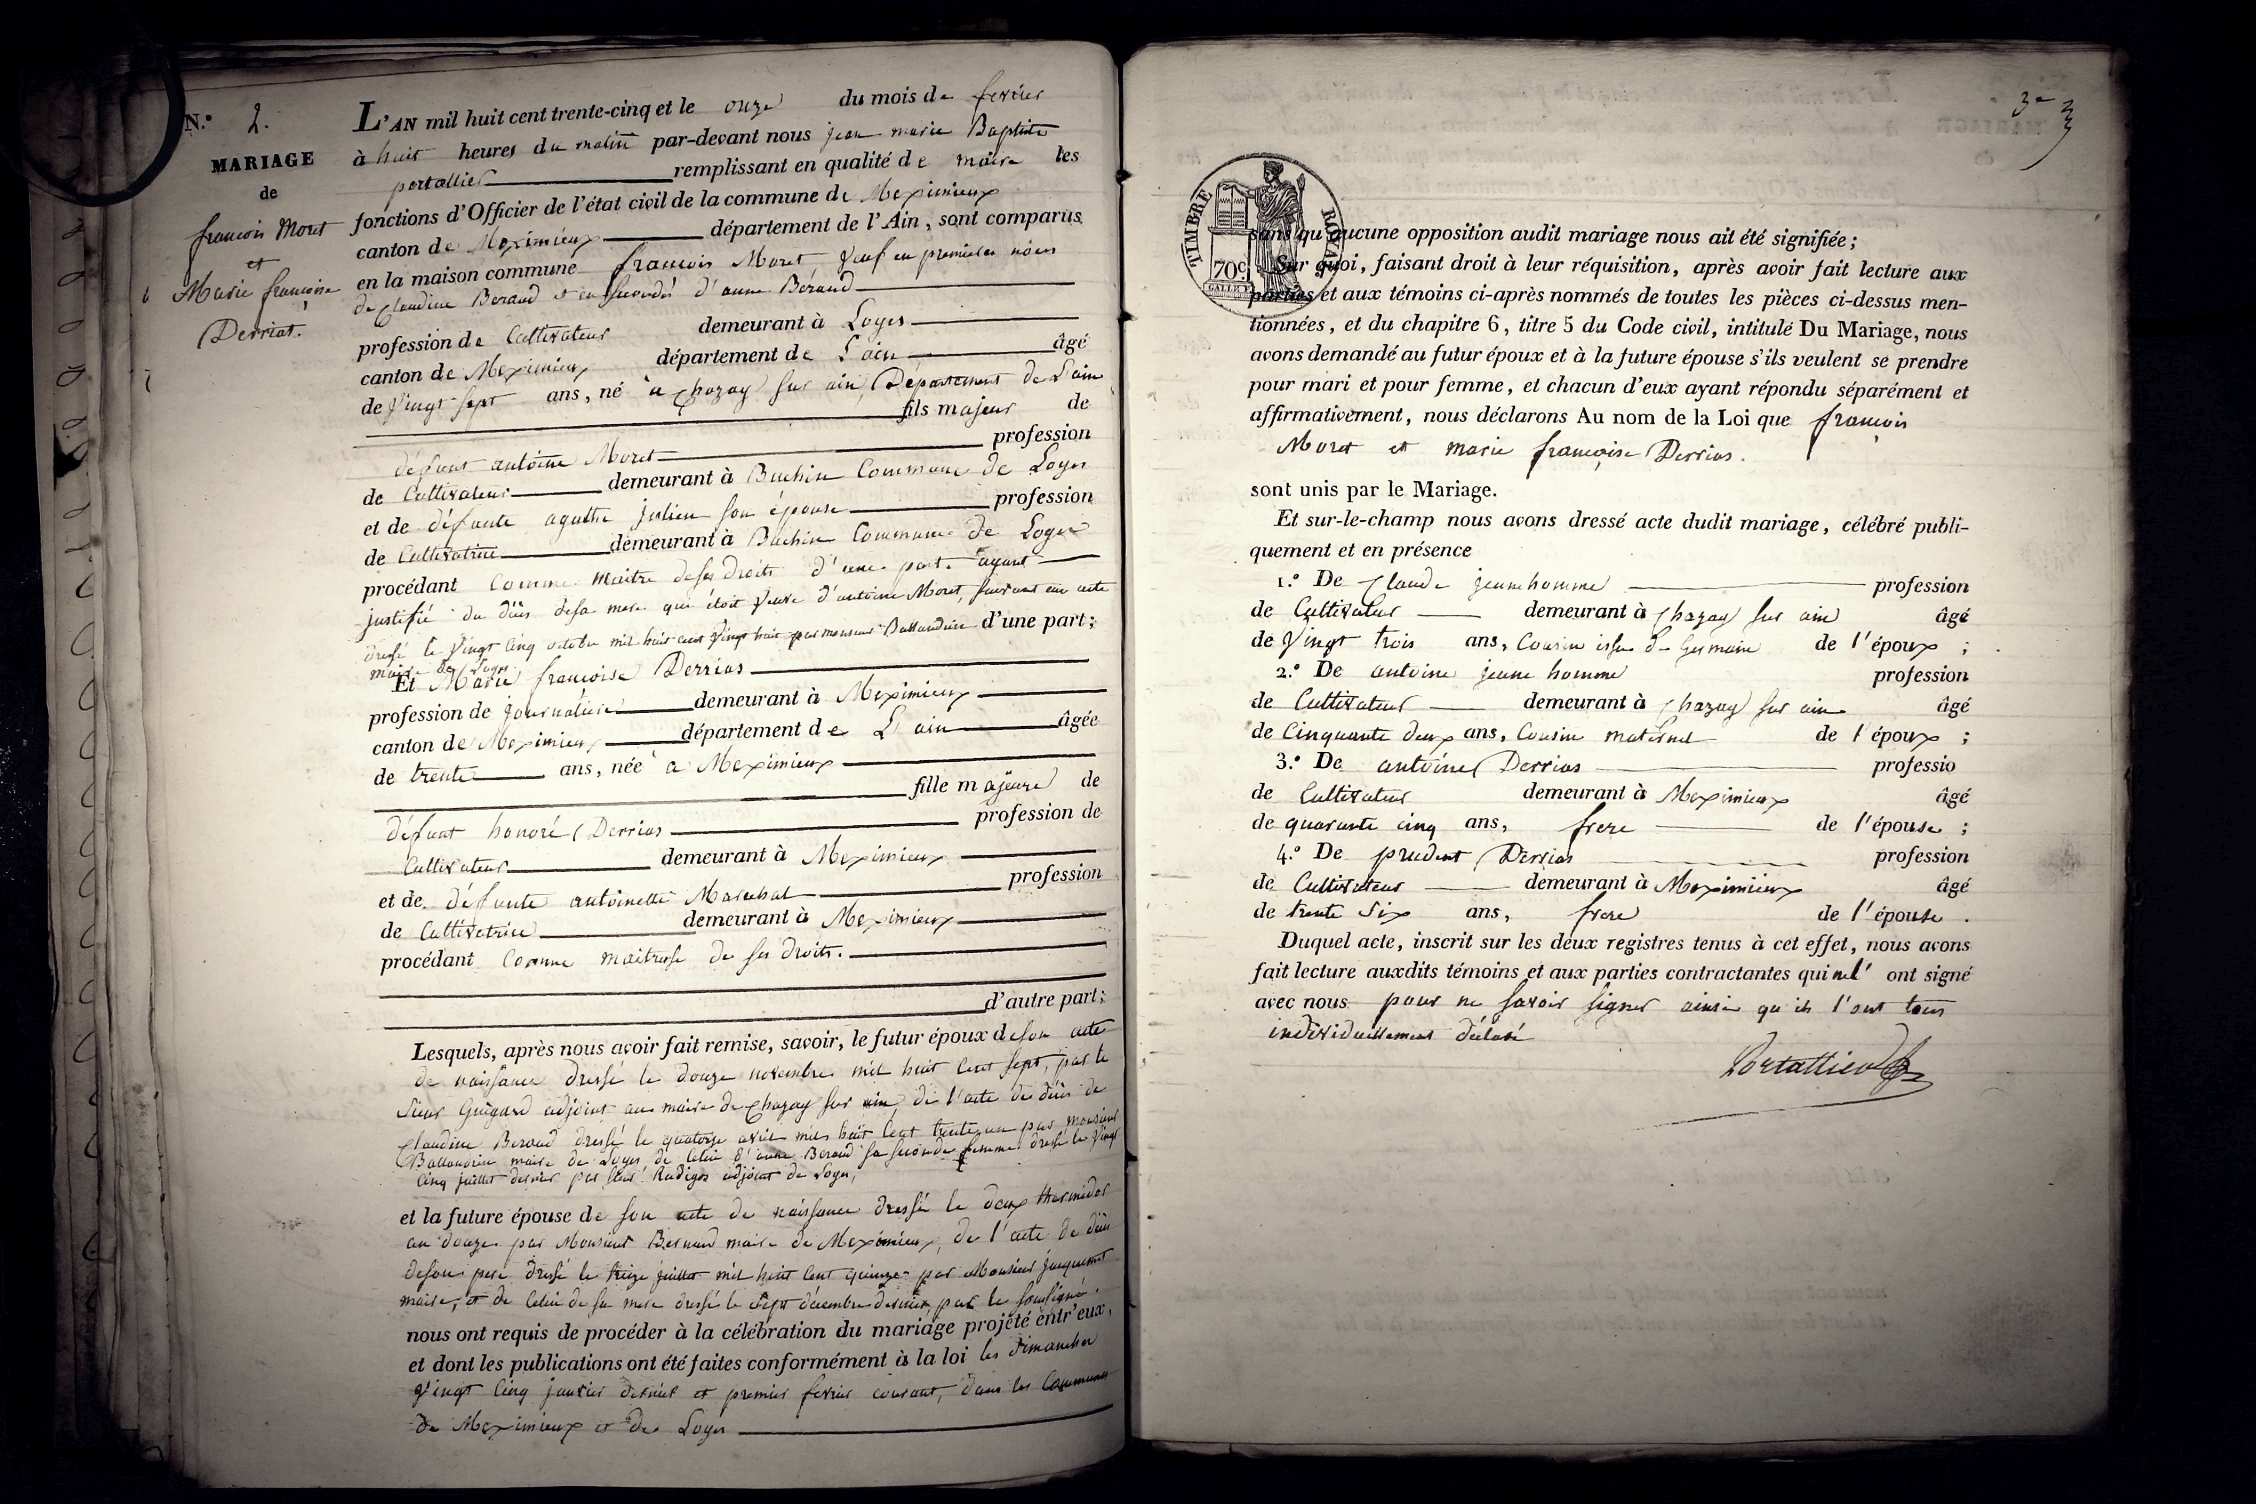 N.º 2.
MARIAGE
de
françois Moret
et
Marie françoise
Derrias.
L'AN mil huit cent trente-cinq et le onze du mois de fevrier
à huit heures du matin par-devant nous jean marie Baptiste
portallier remplissant en qualité de maire les
fonctions d'Officier de l'état civil de la commune de Meximieux
canton de Meximieux département de l'Ain, sont comparus
en la maison commune françois Moret veuf en premieres nôces
de Claudine Beraud et en secondes d'anne Béraud
profession de Cultivateur demeurant à Loyes
canton de Meximieux département de L'ain âgé
de vingt sept ans, né à Chazay sur ain, Département de L'ain
fils majeur de
défunt antoine Moret profession
de Cultivateur demeurant à Buchin Commune de Loyes
et de défunte agathe julien son épouse profession
de Cultivatrice demeurant à Buchin Commune de Loyes
procédant comme maitre de ses droits d'une part ayant
justifié du décès de sa mere qui étoit veuve d'antoine Moret, suivant un acte
dressé le vingt cinq octobre mil huit cent vingt huit par monsieur Ballandrin d'une part;
maire de Loyes
Et Marie françoise Derrias
profession de journalière demeurant à Meximieux
canton de Meximieux département de L'ain âgée
de trente ans, née à Meximieux
fille majeure de
défunt honoré Derrias profession de
Cultivateur demeurant à Meximieux
et de défunte antoinette Marechal profession
de Cultivatrice demeurant à Meximieux
procédant Comme maitresse de ses droits.
d'autre part;
Lesquels, après nous avoir fait remise, savoir, le futur époux de son acte
de naissance dressé le douze novembre mil huit cent sept, par le
sieur Guigard adjoint au maire de Chazay sur ain, de l'acte de décès de
Claudine Beraud dressé le quatorze avril mil huit cent trente un par monsieur
Ballandrin maire de Loyes, de celui d'anne Beraud sa seconde femme dressé le vingt
cinq juillet dernier par sieur Rudigoz adjoint de Loyes,
et la future épouse de son acte de naissance dressé le deux thermidor
an douze par Monsieur Bernard maire de Meximieux, de l'acte de décès
de son pere dressé le treize juillet mil huit cent quinze par Monsieur jacquemet
maire, et de celui de sa mere dressé le sept décembre dernier par le soussigné.
nous ont requis de procéder à la célébration du mariage projeté entr'eux,
et dont les publications ont été faites conformément à la loi les dimanches
vingt cinq janvier dernier et premier fevrier courant, dans les Communes
de Meximieux et de Loyes
3e
3
TIMBRE ROYAL
70c
sans qu'aucune opposition audit mariage nous ait été signifiée;
Sur quoi, faisant droit à leur réquisition, après avoir fait lecture aux
parties et aux témoins ci-après nommés de toutes les pièces ci-dessus men-
tionnées, et du chapitre 6, titre 5 du Code civil, intitulé Du Mariage, nous
avons demandé au futur époux et à la future épouse s'ils veulent se prendre
pour mari et pour femme, et chacun d'eux ayant répondu séparément et
affirmativement, nous déclarons Au nom de la Loi que françois
Moret et marie françoise Derrias.
sont unis par le Mariage.
Et sur-le-champ nous avons dressé acte dudit mariage, célébré publi-
quement et en présence
1.º De Claude jeunehomme profession
de Cultivateur demeurant à Chazay sur ain âgé
de vingt trois ans, Cousin issu de Germain de l'époux ;
2.º De antoine jeune homme profession
de Cultivateur demeurant à Chazay sur ain âgé
de Cinquante deux ans, Cousin maternel de l'époux ;
3.º De antoine Derrias professio
de Cultivateur demeurant à Meximieux âgé
de quarante cinq ans, frere de l'épouse ;
4.º De prudent Derrias profession
de Cultivateur demeurant à Meximieux âgé
de trente six ans, frere de l'épouse .
Duquel acte, inscrit sur les deux registres tenus à cet effet, nous avons
fait lecture auxdits témoins et aux parties contractantes qui ne l' ont signé
avec nous pour ne savoir signer ainsi qu'ils l'ont tous
individuellement déclaré
Portallier